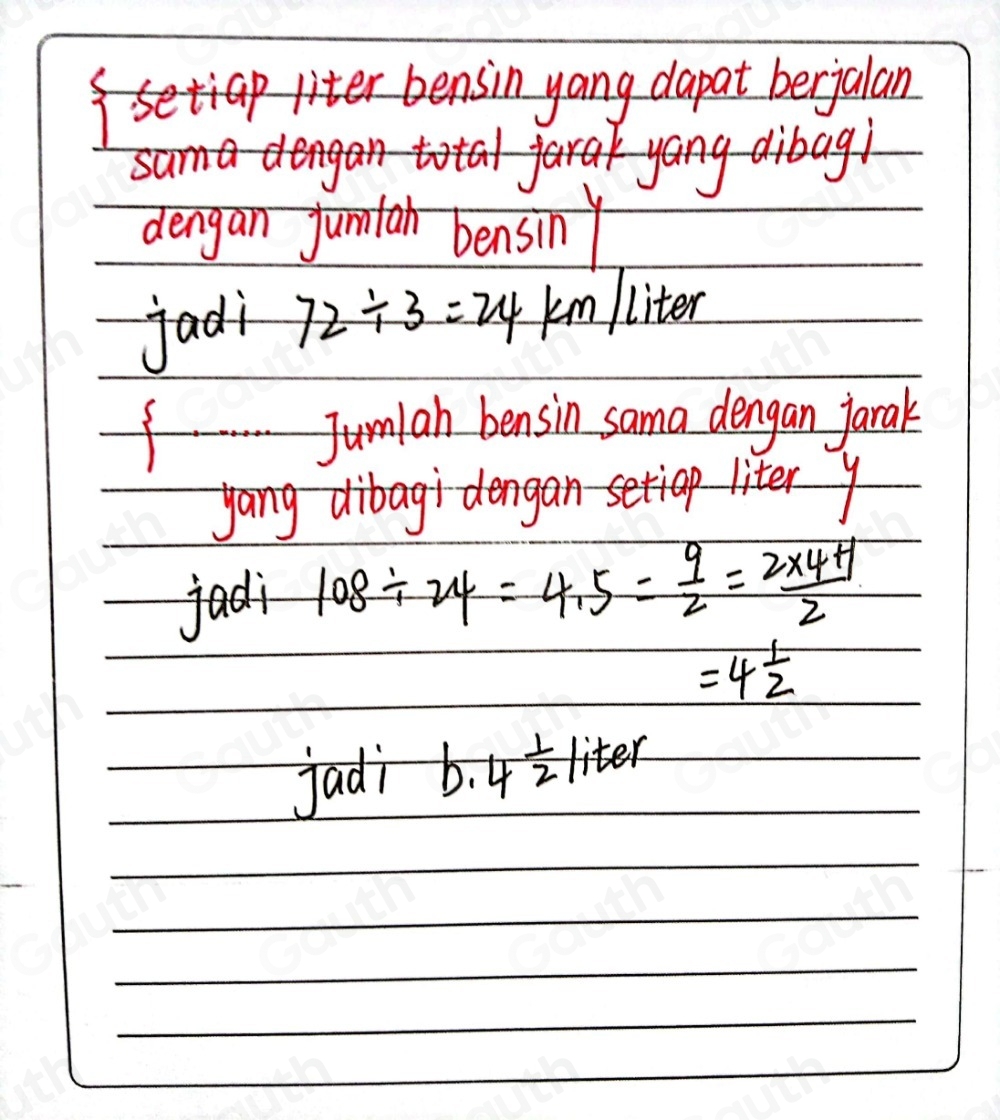 { setiap liter bensin yang dapat berjalan
sama dengan total jarak yang dibagi
dengan jumlah bensin }
jadi 72 ÷ 3 = 24 km/liter
{ ....... Jumlah bensin sama dengan jarak
yang dibagi dengan setiap liter }
jadi 108 ÷ 24 = 4,5 = 9/2 = (2×4+1)/2
= 4 1/2
jadi b. 4 1/2 liter
Gauth